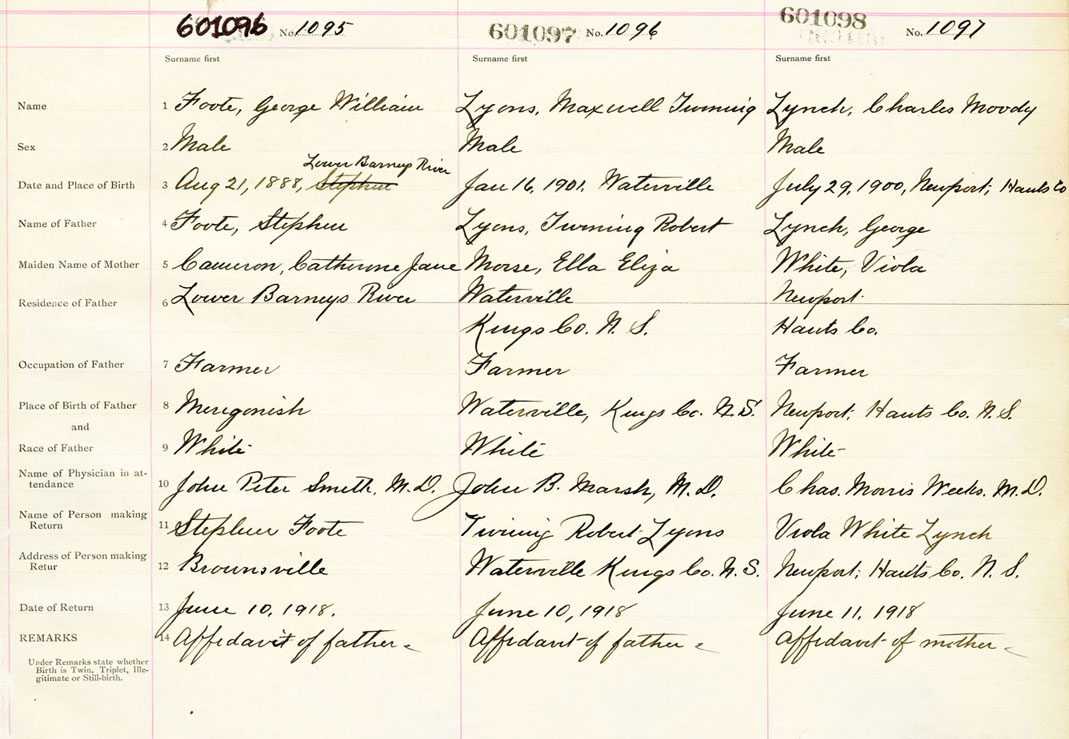 601096 No. 1095 601097 No. 1096 601098 No. 1097
Surname first Surname first Surname first
Name 1 Foote, George William Lyons, Maxwell Twining Lynch, Charles Moody
Sex 2 Male Male Male
Lower Barneys River
Date and Place of Birth 3 Aug 21, 1888, Stephen Jan 16, 1901, Waterville July 29, 1900, Newport, Hants Co
Name of Father 4 Foote, Stephen Lyons, Twining Robert Lynch, George
Maiden Name of Mother 5 Cameron, Catherine Jane Morse, Ella Eliza White, Viola
Residence of Father 6 Lower Barneys River Waterville Newport
Kings Co. N. S. Hants Co.
Occupation of Father 7 Farmer Farmer Farmer
Place of Birth of Father 8 Merigonish Waterville, Kings Co. N.S. Newport, Hants Co. N.S.
and
Race of Father 9 White White White
Name of Physician in at-
tendance 10 John Peter Smith, M.D. John B. Marsh, M.D. Chas. Morris Weeks. M.D.
Name of Person making
Return 11 Stephen Foote Twining Robert Lyons Viola White Lynch
Address of Person making
Retur 12 Brownsville Waterville Kings Co. N.S. Newport, Hants Co. N. S.
Date of Return 13 June 10, 1918. June 10, 1918 June 11, 1918
REMARKS 14 Affidavit of father Affidavit of father Affidavit of mother
Under Remarks state whether
Birth is Twin, Triplet, Ille-
gitimate or Still-birth.